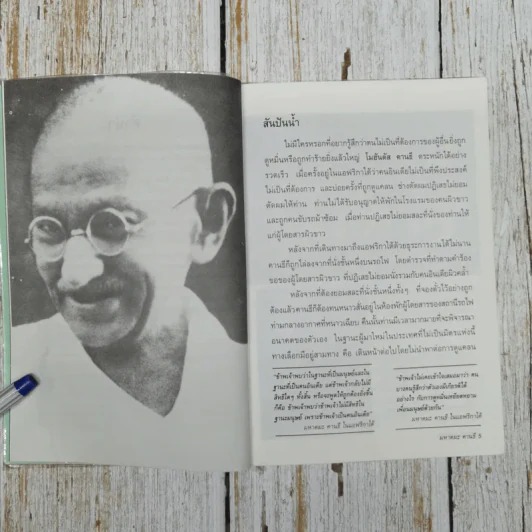 สันปันน้ำ
ไม่มีใครหรอกที่อยากรู้สึกว่าตนไม่เป็นที่ต้องการของผู้อื่น ยิ่งถูก
ดูหมิ่นหรือถูกทำร้ายยิ่งแล้วใหญ่ โมฮันดัส คานธี ตระหนักได้อย่าง
รวดเร็ว เมื่อครั้งอยู่ในแอฟริกาใต้ว่าคนอินเดียไม่เป็นที่พึงประสงค์
ไม่เป็นที่ต้องการ และบ่อยครั้งที่ถูกดูแคลน ช่างตัดผมปฏิเสธไม่ยอม
ตัดผมให้ท่าน ท่านไม่ได้รับอนุญาตให้พักในโรงแรมของคนผิวขาว
และถูกคนขับรถม้าซ้อม เมื่อท่านปฏิเสธไม่ยอมสละที่นั่งของท่านให้
แก่ผู้โดยสารผิวขาว
หลังจากที่เดินทางมาถึงแอฟริกาใต้ด้วยธุระการงานได้ไม่นาน
คานธีก็ถูกไล่ลงจากที่นั่งชั้นหนึ่งบนรถไฟ โดยตำรวจที่ทำตามคำร้อง
ขอของผู้โดยสารผิวขาว ที่ปฏิเสธไม่ยอมนั่งรวมกับคนอินเดียผิวคล้ำ
หลังจากที่ต้องยอมสละที่นั่งชั้นหนึ่งทั้งๆ ที่จองตั๋วไว้อย่างถูก
ต้องแล้วคานธีก็ต้องทนหนาวสั่นอยู่ในห้องพักผู้โดยสารของสถานีรถไฟ
ท่ามกลางอากาศที่หนาวเฉียบ คืนนั้นท่านมีเวลามากมายที่จะพิจารณา
อนาคตของตัวเอง ในฐานะผู้มาใหม่ในประเทศที่ไม่เป็นมิตรแห่งนี้
ทางเลือกมีอยู่สามทาง คือ เดินหน้าต่อไปโดยไม่นำพาต่อการดูแคลน
"ข้าพเจ้าพบว่าในฐานะที่เป็นมนุษย์และใน
ฐานะที่เป็นคนอินเดีย แต่ข้าพเจ้ากลับไม่มี
สิทธิใดๆ ทั้งสิ้น หรือจะพูดให้ถูกต้องยิ่งขึ้น
ก็คือ ข้าพเจ้าพบว่าข้าพเจ้าไม่มีสิทธิใน
ฐานะมนุษย์ เพราะข้าพเจ้าเป็นคนอินเดีย"
มหาตมะ คานธี ในแอฟริกาใต้
"ข้าพเจ้าไม่เคยเข้าใจเสมอมาว่า คน
บางคนรู้สึกว่าตัวเองมีเกียรติได้
อย่างไร กับการดูหมิ่นเหยียดหยาม
เพื่อนมนุษย์ด้วยกัน"
มหาตมะ คานธี ในแอฟริกาใต้
มหาตมะ คานธี 5